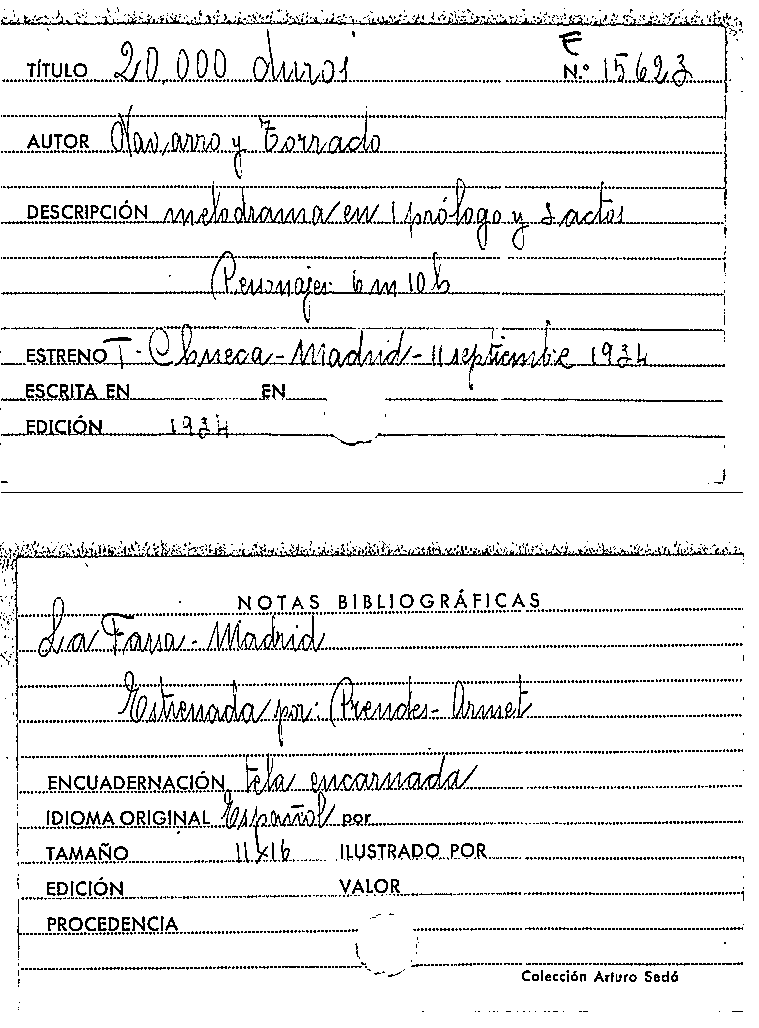 E
TÍTULO 20.000 duros N.º 15623
AUTOR Navarro y Torrado
DESCRIPCIÓN melodrama en 1 prólogo y 3 actos
Personajes 6 m 10 h
ESTRENO T. Chueca - Madrid - 11 septiembre 1934
ESCRITA EN EN
EDICIÓN 1934
NOTAS BIBLIOGRÁFICAS
La Farsa - Madrid
Estrenada por: Prendes - Armet
ENCUADERNACIÓN tela encarnada
IDIOMA ORIGINAL Español por
TAMAÑO 11x16 ILUSTRADO POR
EDICIÓN VALOR
PROCEDENCIA
Colección Arturo Sedó